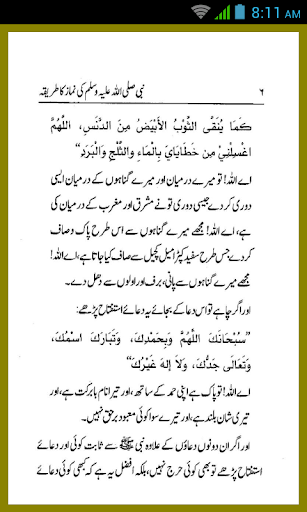 8:11 AM
۶ نبی صلی اللہ علیہ وسلم کی نماز کا طریقہ
كَمَا يُنَقَّى الثَّوْبُ الْأَبْيَضُ مِنَ الدَّنَسِ، اللَّهُمَّ
اغْسِلْنِيْ مِنْ خَطَايَايَ بِالْمَاءِ وَالثَّلْجِ وَالْبَرَدِ“
اے اللہ! تو میرے درمیان اور میرے گناہوں کے درمیان ایسی
دوری کردے جیسی دوری تو نے مشرق اور مغرب کے درمیان کی
ہے، اے اللہ! مجھے میرے گناہوں سے اس طرح پاک وصاف
کردے جس طرح سفید کپڑا میل کچیل سے صاف کیا جاتا ہے، اے اللہ!
مجھے میرے گناہوں سے پانی، برف اور اولوں سے دھل دے۔
اور اگر چاہے تو اس دعا کے بجائے یہ دعائے استفتاح پڑھے:
”سُبْحَانَكَ اللَّهُمَّ وَبِحَمْدِكَ، وَتَبَارَكَ اسْمُكَ،
وَتَعَالَى جَدُّكَ، وَلَا إِلٰهَ غَيْرُكَ“
اے اللہ! تو پاک ہے اپنی حمد کے ساتھ، اور تیرا نام بابرکت ہے، اور
تیری شان بلند ہے، اور تیرے سوا کوئی معبود برحق نہیں۔
اور اگر ان دونوں دعاؤں کے علاوہ نبی ﷺ سے ثابت کوئی اور دعائے
استفتاح پڑھے تو بھی کوئی حرج نہیں، بلکہ افضل یہ ہے کہ کبھی کوئی دعائے